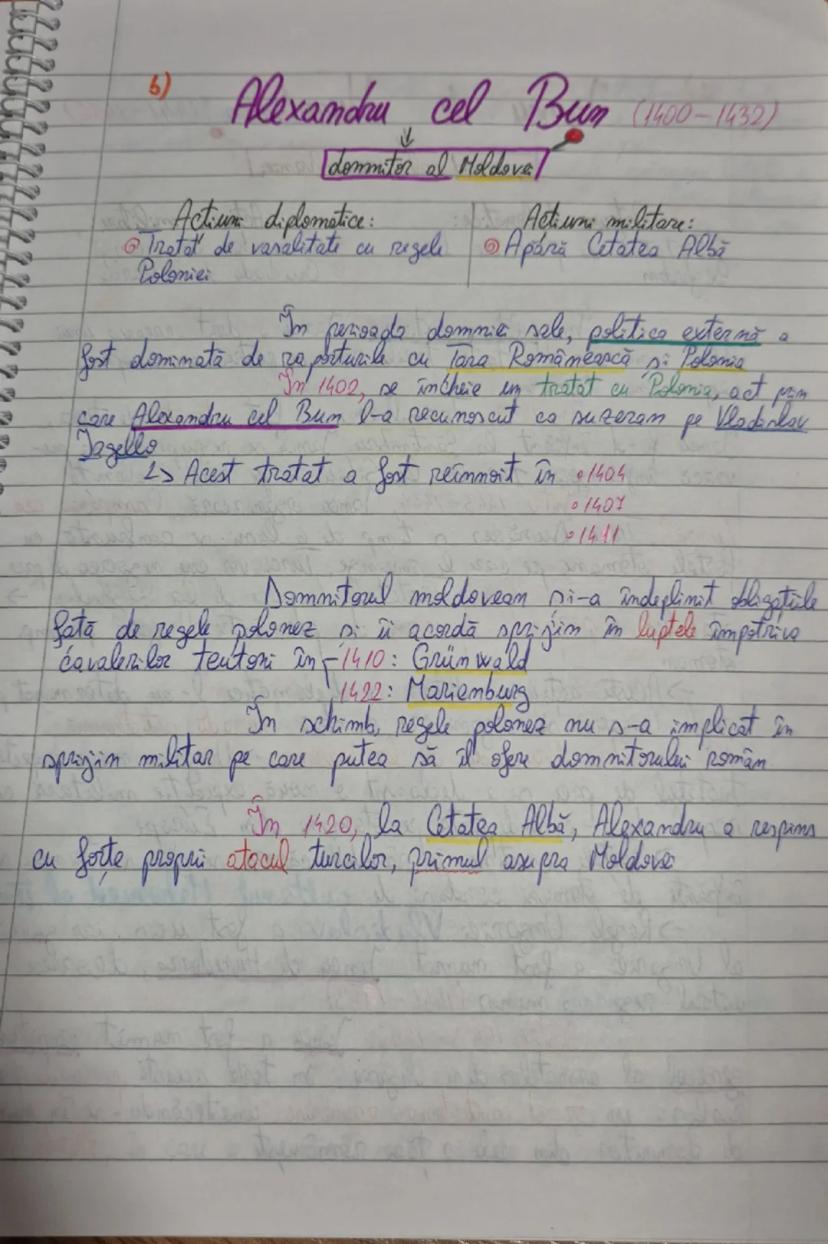 b) Alexandru cel Bun (1400-1432)
↓
domnitor al Moldovei
Acțiuni diplomatice:
Tratat de vasalitate cu regele
Poloniei
Acțiuni militare:
Apără Cetatea Albă
În perioada domniei sale, politica externă a
fost dominată de raporturile cu Țara Românească și Polonia
În 1402, se încheie un tratat cu Polonia, act prin
care Alexandru cel Bun l-a recunoscut ca suzeran pe Vladislav
Jagello
↳ Acest tratat a fost reînnoit în • 1404
• 1407
• 1411
Domnitorul moldovean și-a îndeplinit obligațiile
față de regele polonez și îi acordă sprijin în luptele împotriva
cavalerilor teutoni în - 1410: Grünwald
1422: Marienburg
În schimb, regele polonez nu s-a implicat în
sprijin militar pe care putea să îl ofere domnitorului român
În 1420, la Cetatea Albă, Alexandru a respins
cu forțe proprii atacul turcilor, primul asupra Moldovei